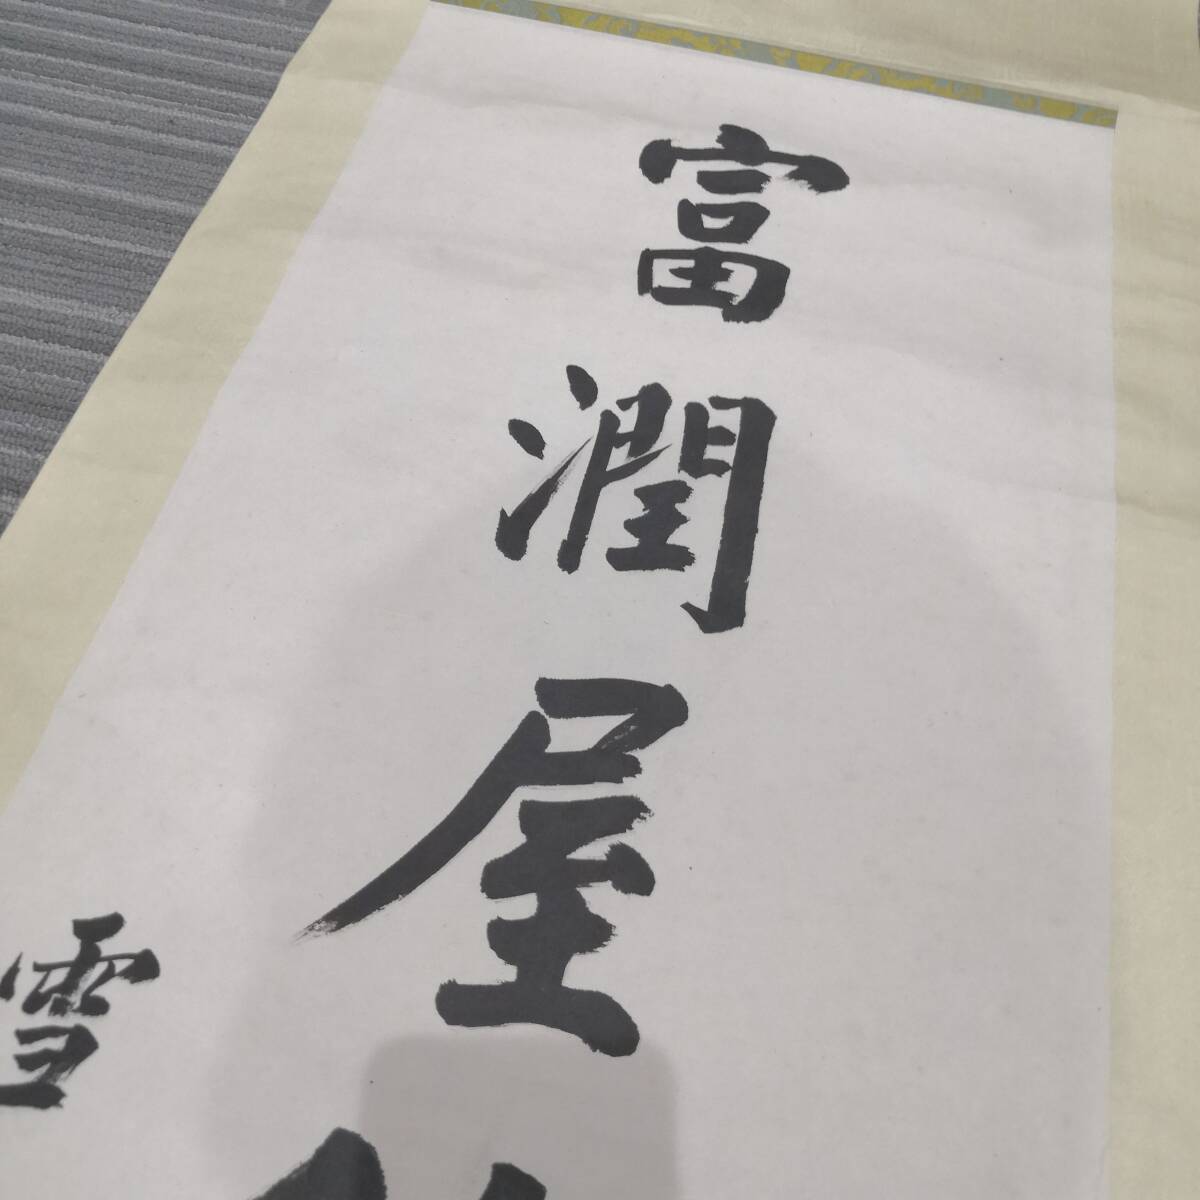 富潤屋
雪